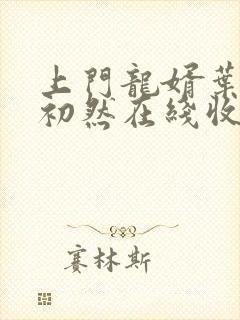 上門龍婿葉
初然在綫收
賽林斯